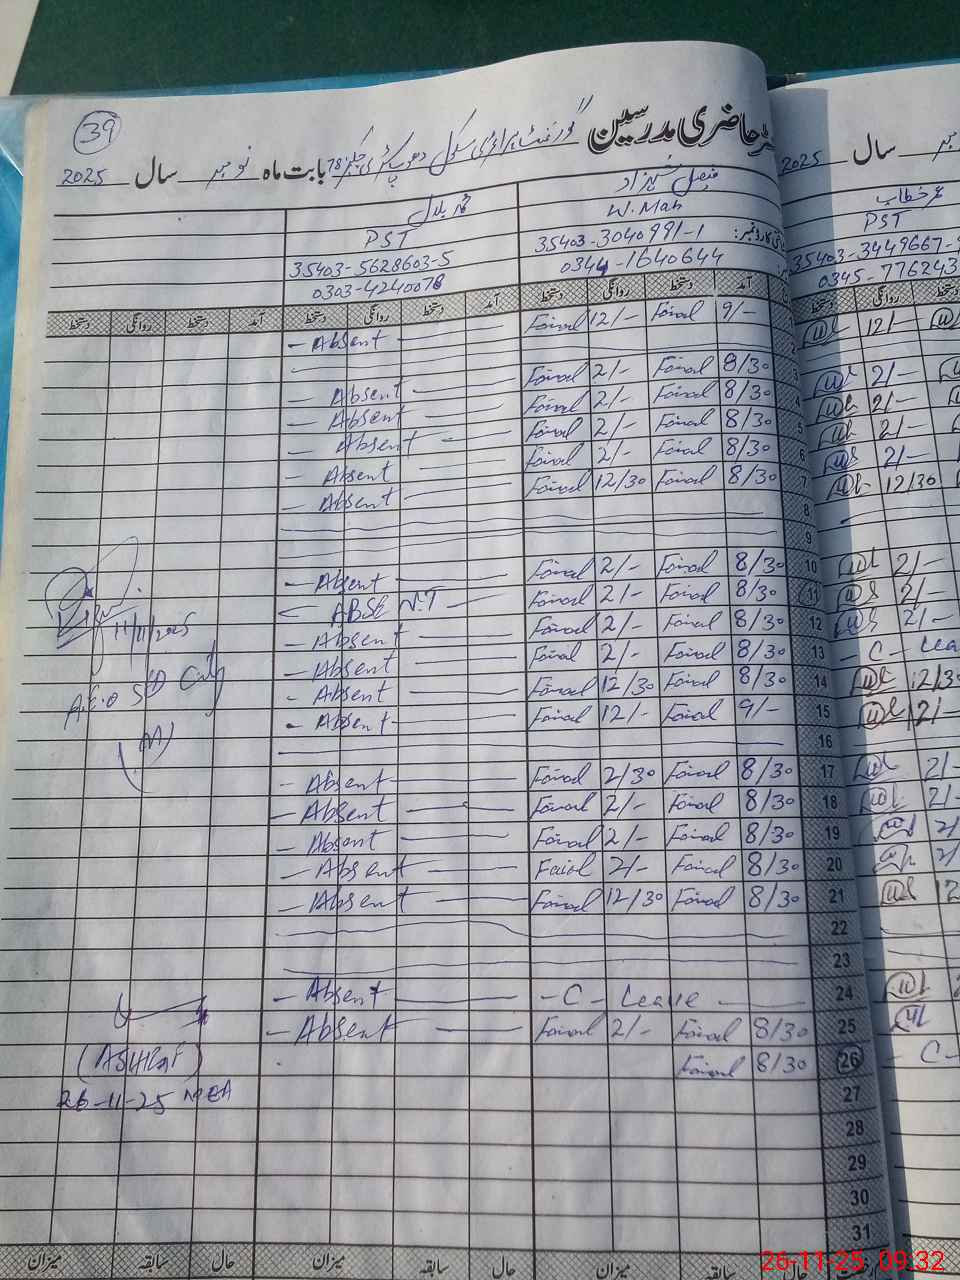 39
رجسٹر حاضری مدرسین گورنمنٹ پرائمری سکول
بابت ماہ نومبر سال 2025
سال 2025
فیصل شہزاد
محمد بلال
عمر خطاب
W. Man
PST
PST
35403-3040991-1
35403-5628603-5
35403-3449667-
0344-1640644
0303-4240078
0345-776243
آمد دستخط روانگی دستخط آمد دستخط روانگی دستخط آمد دستخط روانگی دستخط
9/- Faisal 12/- Faisal - Absent 12/-
2
3 8/30 Faisal 2/- Faisal - Absent 2/-
4 8/30 Faisal 2/- Faisal - Absent 2/-
5 8/30 Faisal 2/- Faisal - Absent 2/-
6 8/30 Faisal 2/- Faisal - Absent 2/-
7 8/30 Faisal 12/30 Faisal - Absent 12/30
8
9
10 8/30 Faisal 2/- Faisal - Absent 2/-
11 8/30 Faisal 2/- Faisal ABSENT 2/-
12 8/30 Faisal 2/- Faisal - Absent 2/-
13 8/30 Faisal 2/- Faisal - Absent - C - Lea
14 8/30 Faisal 12/30 Faisal - Absent 12/30
15 9/- Faisal 12/- Faisal - Absent 12/-
16
17 8/30 Faisal 2/30 Faisal - Absent 2/-
18 8/30 Faisal 2/- Faisal - Absent 2/-
19 8/30 Faisal 2/- Faisal - Absent 2/
20 8/30 Faisal 2/- Faisal - Absent 2/
21 8/30 Faisal 12/30 Faisal - Absent 12
22
23
24 - C - Leave - Absent
25 8/30 Faisal 2/- Faisal - Absent
26 8/30 Faisal - C -
27
28
29
30
31
11/11/2025
A.E.O City
(M)
(ASHRAF)
26-11-25 MEA
حال سابقہ میزان حال سابقہ میزان حال سابقہ میزان
26-11-25 09:32